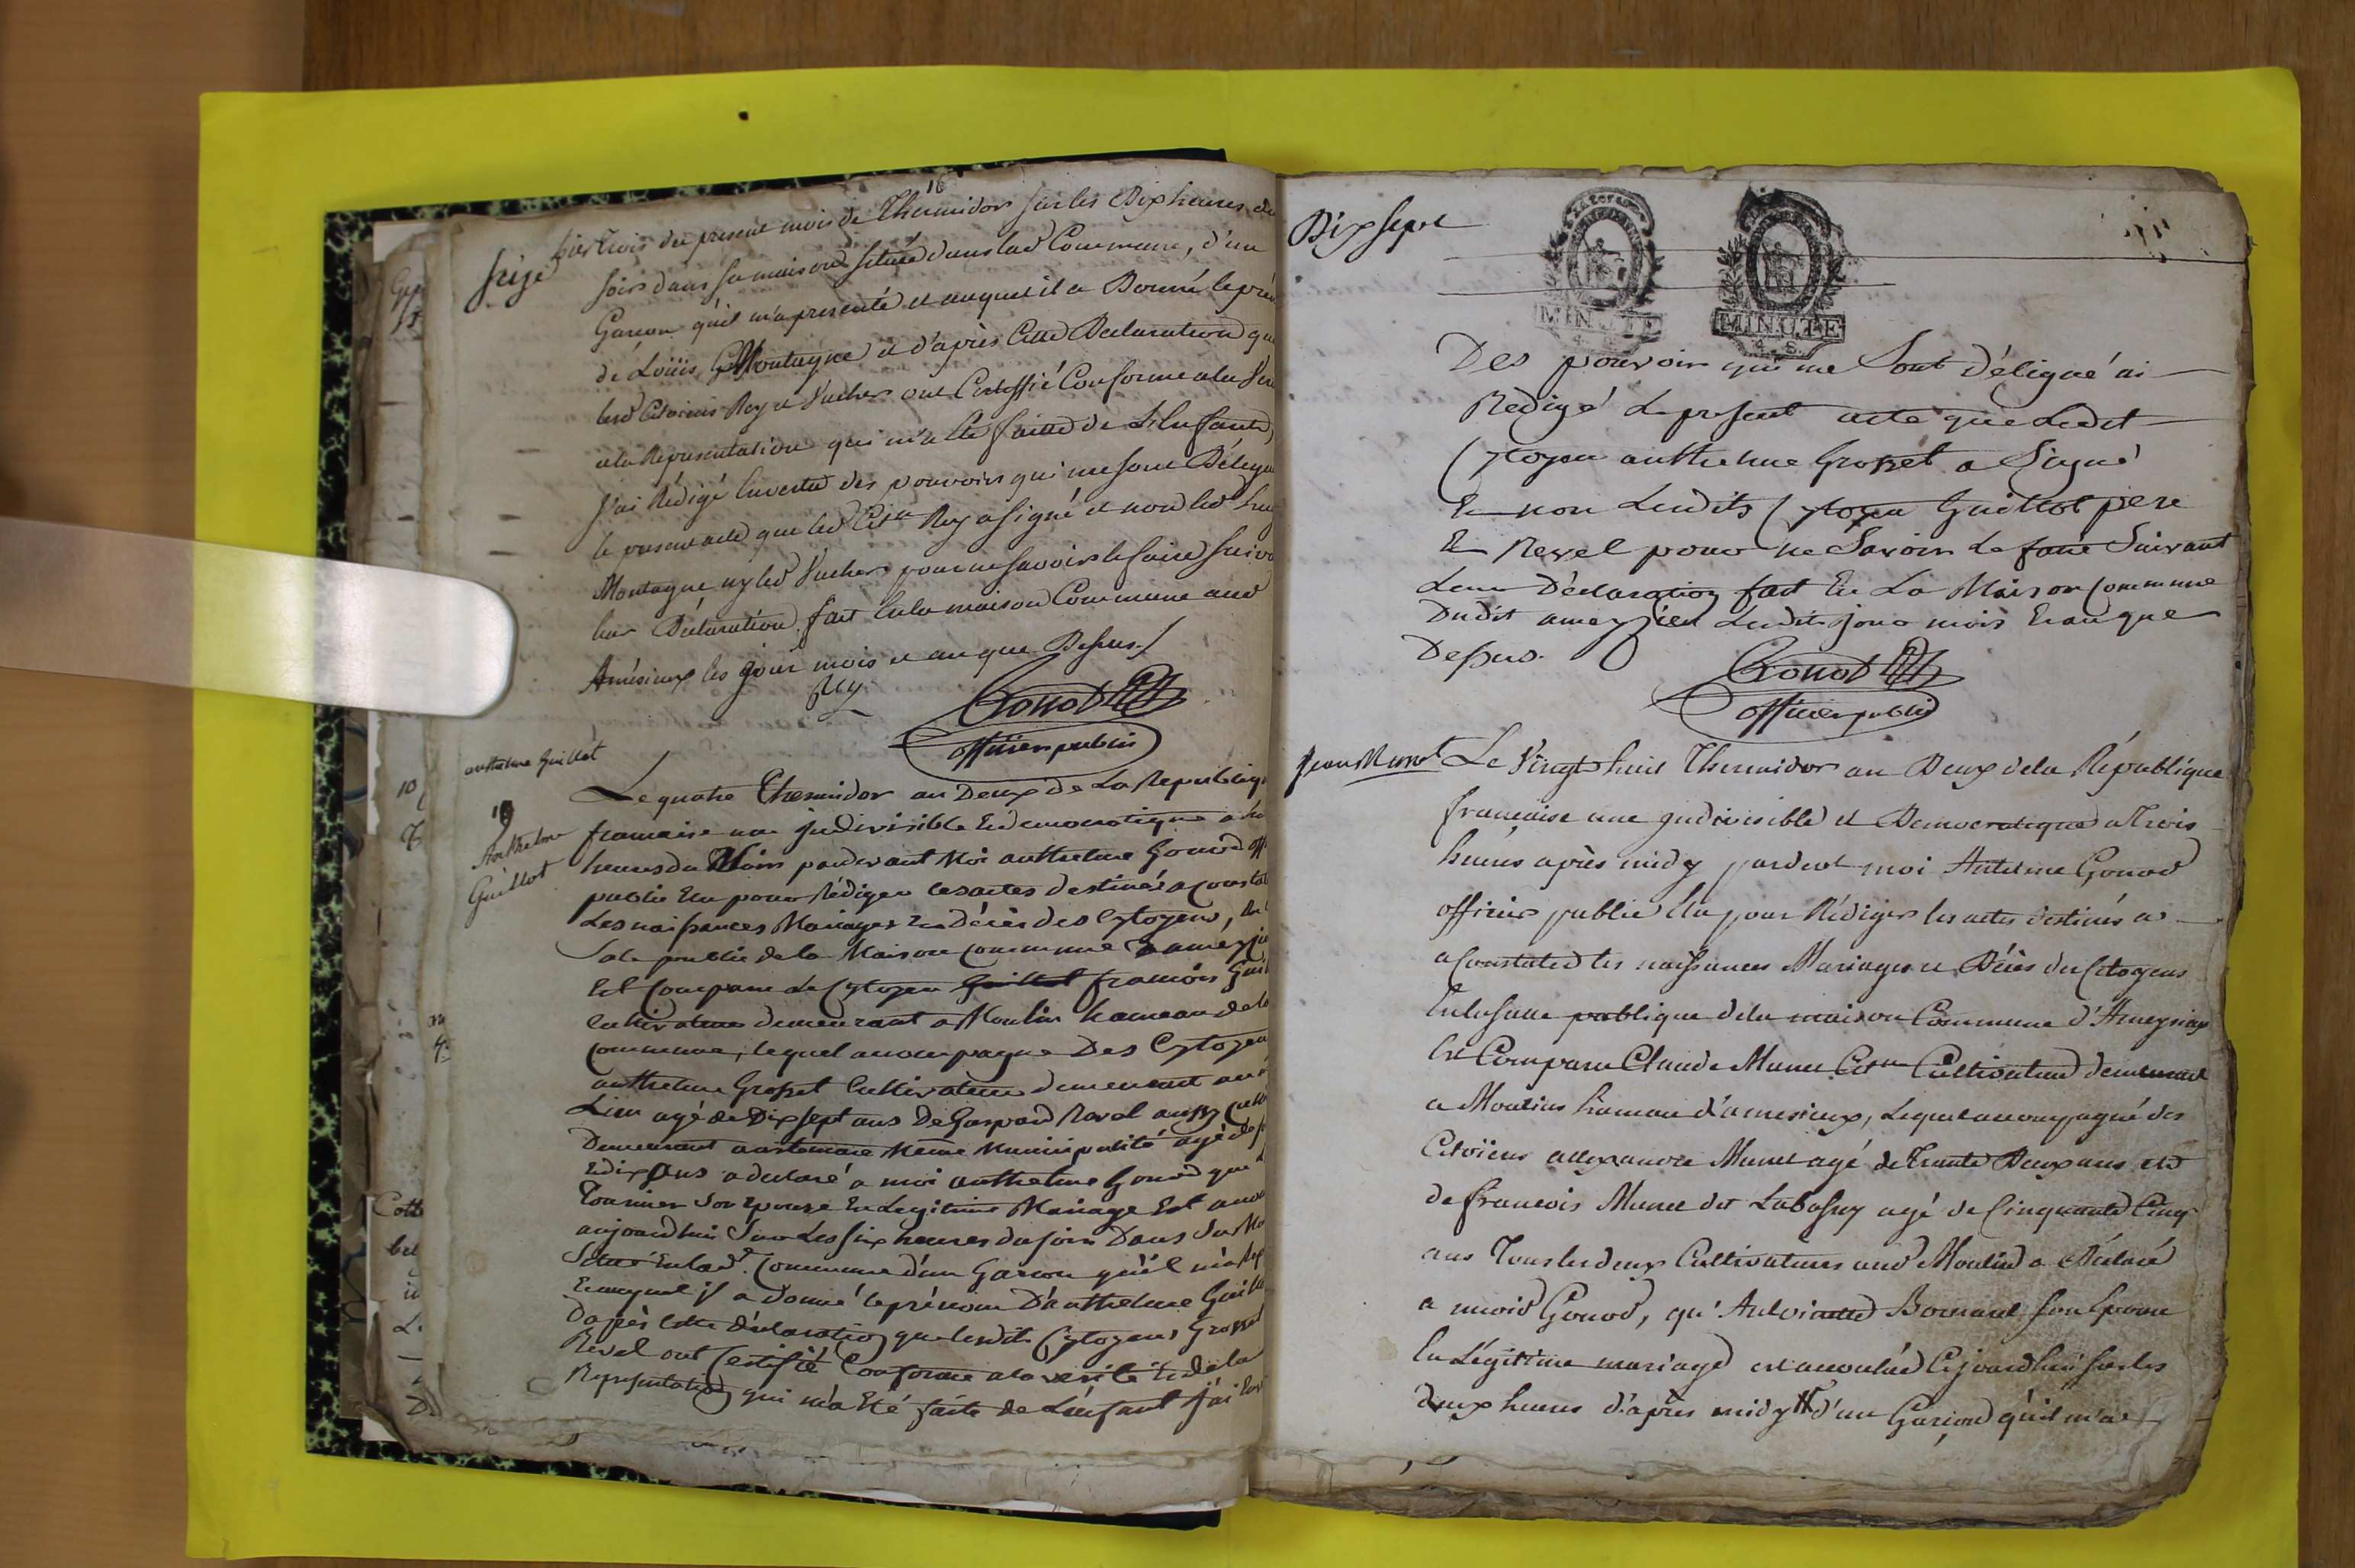 16
seize
hier trois du present mois de Thermidor sur les Dix heures du
soir dans sa maison située dans lad Commune, d'un
Garcon qu'il m'a presenté et auquel il a Donné le prén
de Loüis Montagne et d'après Cette Declaration que
lesd Citoiens Rey et Vucher ont Certiffié Conforme a la
a la Representation qui m'a Eté faitte de L'Enfant
J'ai Rédigé Envertu des pouvoirs qui me sont Délegu
le present acte que led Cit.en Rey a signé et non led
Montagne ny led Vucher pour ne savoir le faire suiv
leur Déclaration fait En la maison Commune aud
Amésieux les jour mois et an que Dessus /
Rey
Gonod
officier public
anthelme Guillot
19
Anthelme
Guillot
Le quatre Thermidor an Deux de La Republiq
francaise une Indivisible Et democratique a
heures du Soir pardevant Moi anthelme Gonod off
public Elu pour Rédiger les actes destinés a Constat
Les naissances Mariages Et décès des Cytoyens,
Sale publie de la Maison commune d'ameyzi
Est Comparu Le Cytoyen Guillot francois Guil
cultivateur demeurant a Moulin hameau de la
commune, lequel accompagne Des Cytoyen
anthelme Grosset Cultivateur demeurant au
Lieu agé de Dix sept ans De Gaspard Revel aussy
Demeurant Même Municipalité agé de
Et dix ans a declaré a moi anthelme Gonod que
Tournier Son Epouse En Legitime Mariage Est acco
aujourdhui Sur Les six heures du soir Dans Sa M
Située En lad. Commune d'un Garcon qu'il m'a
Et auquel il a donné le prénom D'anthelme Guill
D'après Cette déclaration que lesdits Cytoyens Grosset
Revel ont Certifié Conforme a la verité Et de la
Representation qui m'a Eté faite de L'enfant J'ai
Dix sept
MINUTE
MINUTE
4. S.
Des pouvoir qui me Sont déligué ai
Rédigé Le present acte que Ledit
Cytoyen anthelme Grosset a Signé
Et non Lesdits Cytoyen Guillot père
Et Revel pour ne Savoir Le faire Suivant
Leur Déclaration fait En La Maison Commune
Dudit ameyzieu Lesdits jour mois Et an que
Dessus.
Gonod
officier public
Jean Munet
Le Vingt huit Thermidor an Deux de la République
francaise une Indivisible et Democratique a Trois
heures après midy pardevt moi Antelme Gonod
officier public Elu pour Rédiger les actes destinés a
a Constater les naissances Mariages et Décès des Citoyens
En la salle publique de la maison Commune d'Ameysieux
Est Comparu Claude Munet Citen Cultivateur demeurant
a Moulins hameau d'amesieux, Lequel accompagné des
Citoïens allexandre Munet agé de Trente Deux ans et
de francois Munet dit Labassy agé de Cinquante Cinq
ans Tous les deux Cultivateurs aud Moulin a Déclaré
a moid Gonod, qu'Antoinette Bornard son Epouse
En Légitime mariage est accouchée Cejourdhui sur les
deux heures d'après midy d'un Garcon qu'il m'a